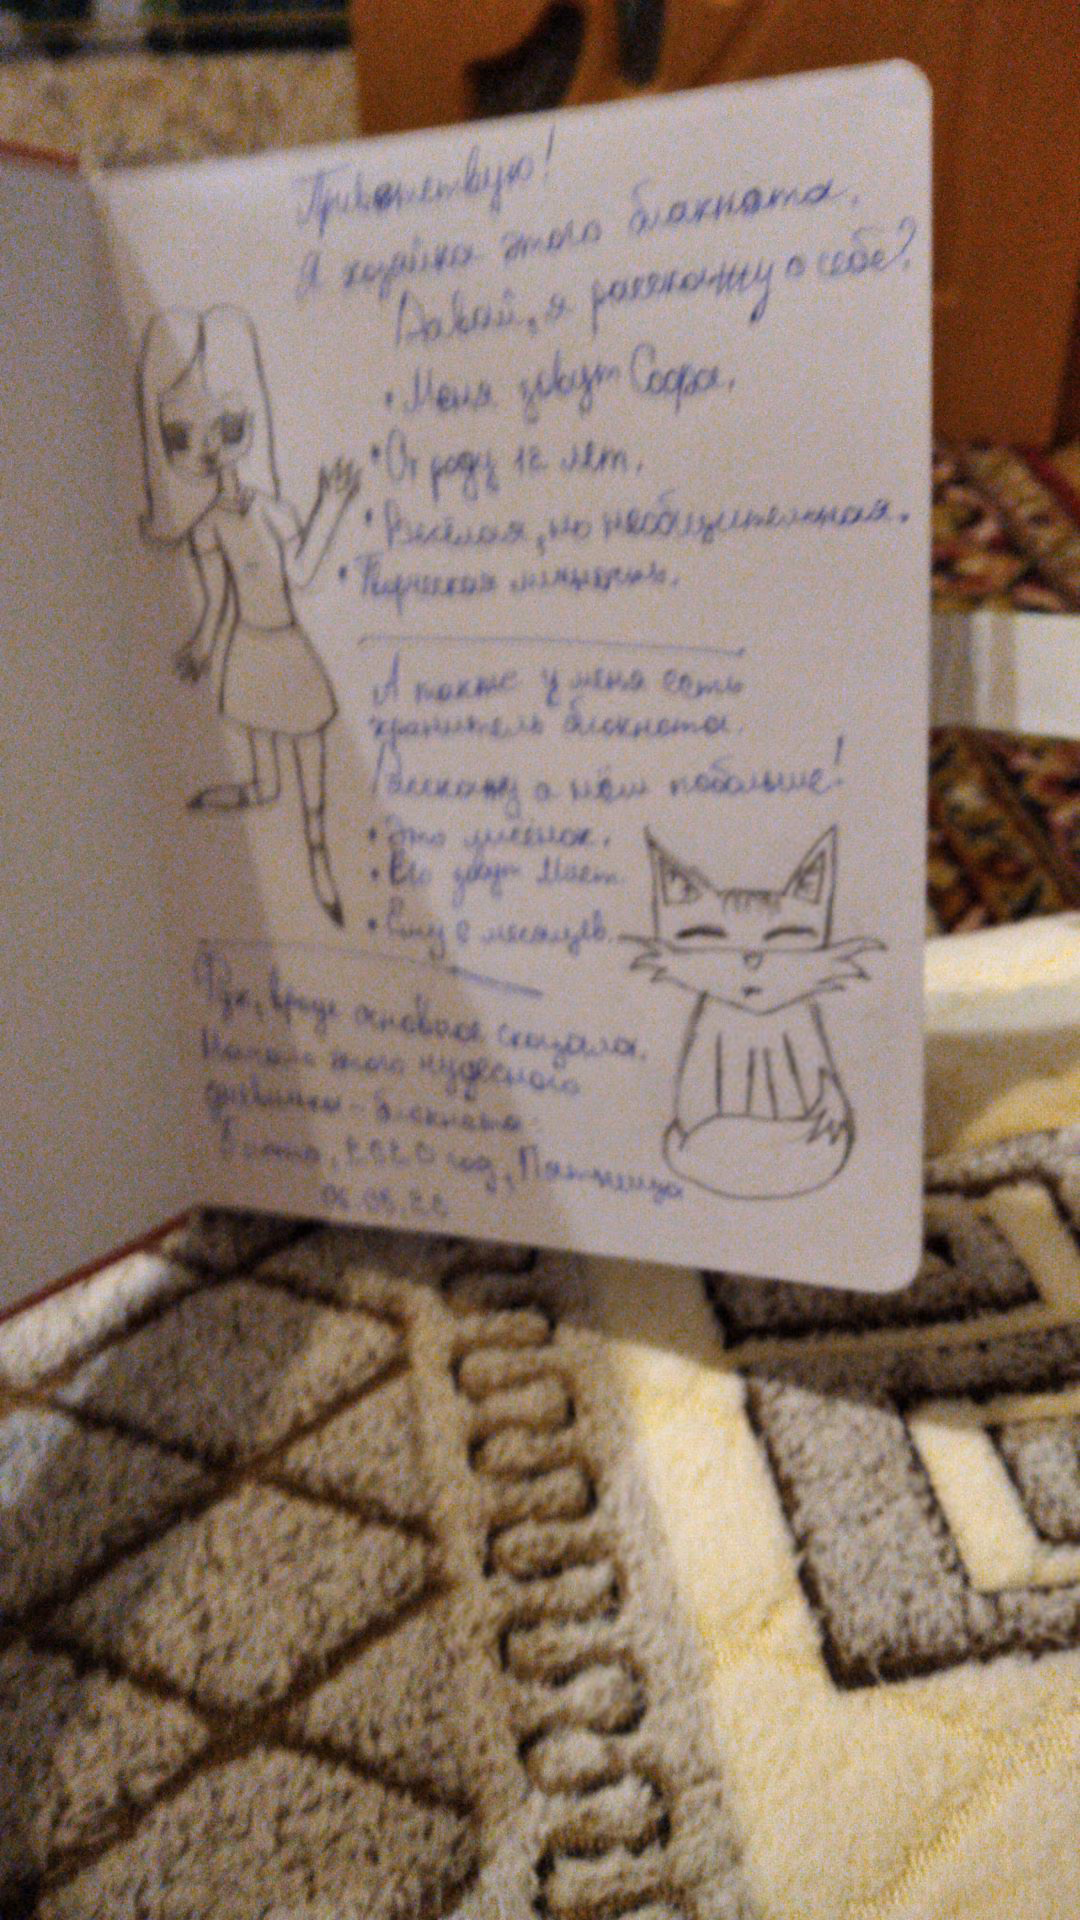 Приветствую!
Я хозяйка этого блокнота.
Давай, я расскажу о себе?
• Меня зовут Софа.
• От роду 12 лет.
• Весёлая, но необщительная.
• Творческая личность.
А также у меня есть
хранитель блокнота.
Расскажу о нём побольше!
• Это лисёнок.
• Его зовут
• Ему 8 месяцев.
Фух, вроде основное сказала.
Начало этого чудесного
дневника-блокнота.
год, Пятница